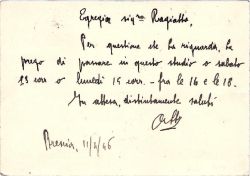 Egregio sig.na Ragiotto,
Per questione che La riguarda, La
prego di passare in questo studio o sabato
13 corr o lunedì 15 corr. - fra le 16 e le 18.
In attesa, distintamente saluti
Brescia, 11/4/46